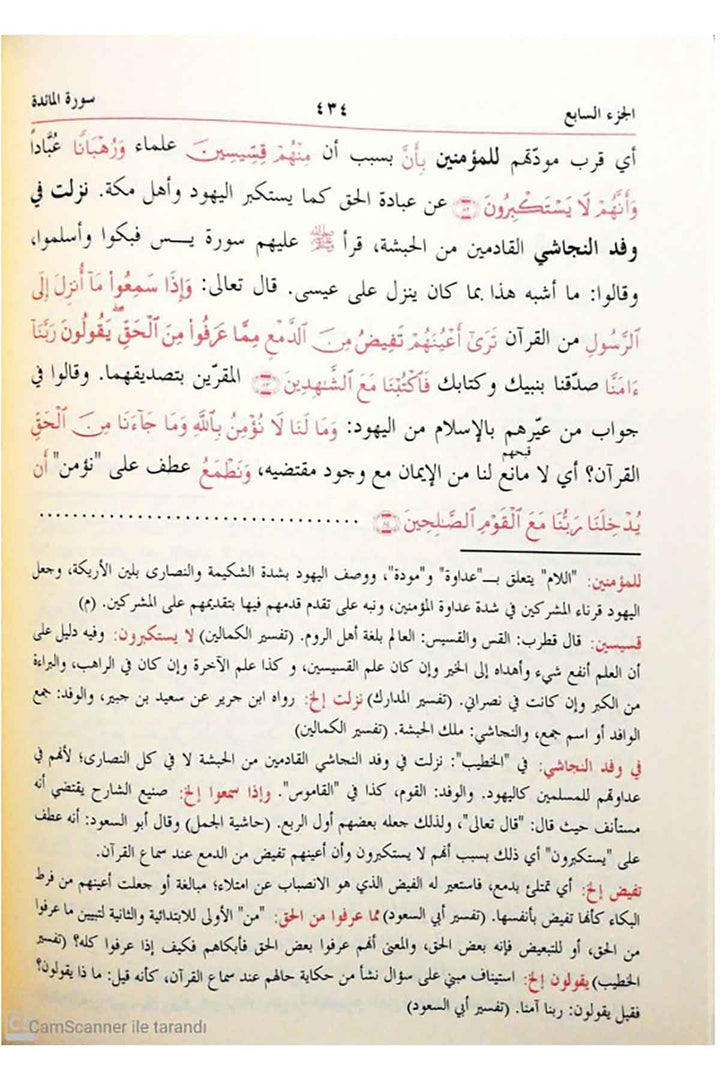 الجزء السابع ٤٣٤ سورة المائدة
أي قرب مودّتهم للمؤمنين بِأَنَّ بسبب أن مِنْهُمْ قِسِّيسِينَ علماء وَرُهْبَانًا عُبَّاداً
وَأَنَّهُمْ لَا يَسْتَكْبِرُونَ ﴿٨٢﴾ عن عبادة الحق كما يستكبر اليهود وأهل مكة. نزلت في
وفد النجاشي القادمين من الحبشة، قرأ ﷺ عليهم سورة يــس فبكوا وأسلموا،
وقالوا: ما أشبه هذا بما كان ينزل على عيسى. قال تعالى: وَإِذَا سَمِعُوا۟ مَآ أُنزِلَ إِلَى
ٱلرَّسُولِ من القرآن تَرَىٰٓ أَعْيُنَهُمْ تَفِيضُ مِنَ ٱلدَّمْعِ مِمَّا عَرَفُوا۟ مِنَ ٱلْحَقِّ ۖ يَقُولُونَ رَبَّنَآ
ءَامَنَّا صدّقنا بنبيك وكتابك فَٱكْتُبْنَا مَعَ ٱلشَّـٰهِدِينَ ﴿٨٣﴾ المقرّين بتصديقهما. وقالوا في
جواب من عيّرهم بالإسلام من اليهود: وَمَا لَنَا لَا نُؤْمِنُ بِٱللَّهِ وَمَا جَآءَنَا مِنَ ٱلْحَقِّ
قبحهم
القرآن؟ أي لا مانع لنا من الإيمان مع وجود مقتضيه، وَنَطْمَعُ عطف على "نؤمن" أَن
يُدْخِلَنَا رَبُّنَا مَعَ ٱلْقَوْمِ ٱلصَّـٰلِحِينَ ﴿٨٤﴾ ................................
للمؤمنين: "اللام" يتعلق بــ"عداوة" و"مودة"، ووصف اليهود بشدة الشكيمة والنصارى بلين الأريكة، وجعل
اليهود قرناء المشركين في شدة عداوة المؤمنين، ونبه على تقدم قدمهم فيها بتقديمهم على المشركين. (م)
قسيسين: قال قطرب: القس والقسيس: العالم بلغة أهل الروم. (تفسير الكمالين) لا يستكبرون: وفيه دليل على
أن العلم أنفع شيء وأهداه إلى الخير وإن كان علم القسيسين، و كذا علم الآخرة وإن كان في الراهب، والبراءة
من الكبر وإن كانت في نصراني. (تفسير المدارك) نزلت إلخ: رواه ابن جرير عن سعيد بن جبير، والوفد: جمع
الوافد أو اسم جمع، والنجاشي: ملك الحبشة. (تفسير الكمالين)
في وفد النجاشي: في "الخطيب": نزلت في وفد النجاشي القادمين من الحبشة لا في كل النصارى؛ لأنهم في
عداوتهم للمسلمين كاليهود. والوفد: القوم، كذا في "القاموس". وإذا سمعوا إلخ: صنيع الشارح يقتضي أنه
مستأنف حيث قال: "قال تعالى"، ولذلك جعله بعضهم أول الربع. (حاشية الجمل) وقال أبو السعود: أنه عطف
على "يستكبرون" أي ذلك بسبب أنهم لا يستكبرون وأن أعينهم تفيض من الدمع عند سماع القرآن.
تفيض إلخ: أي تمتلئ بدمع، فاستعير له الفيض الذي هو الانصباب عن امتلاء؛ مبالغة أو جعلت أعينهم من فرط
البكاء كأنها تفيض بأنفسها. (تفسير أبي السعود) مما عرفوا من الحق: "من" الأولى للابتدائية والثانية لتبيين ما عرفوا
من الحق، أو للتبعيض فإنه بعض الحق، والمعنى أنهم عرفوا بعض الحق فأبكاهم فكيف إذا عرفوا كله؟ (تفسير
الخطيب) يقولون إلخ: استيناف مبني على سؤال نشأ من حكاية حالهم عند سماع القرآن، كأنه قيل: ما ذا يقولون؟
فقيل يقولون: ربنا آمنا. (تفسير أبي السعود)
CS CamScanner ile tarandı